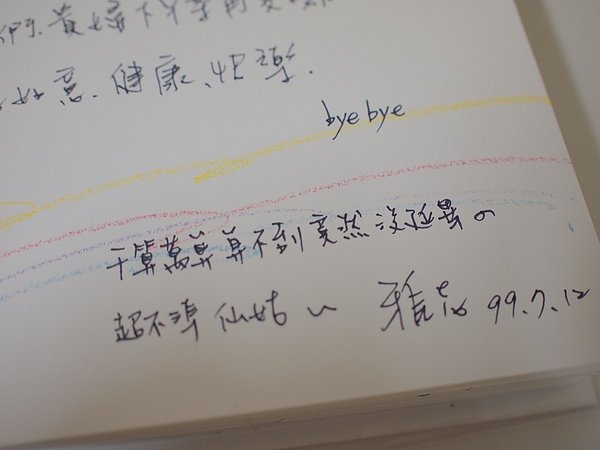 們. 貴婦下午茶
好意. 健康、快樂.
bye bye
千算萬算算不到竟然沒延畢の
超不準仙姑~ 雅 99.7.12